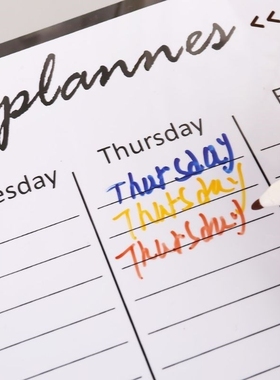 plannes <<
esday Thursday
Thursday
Thursday
Thursday